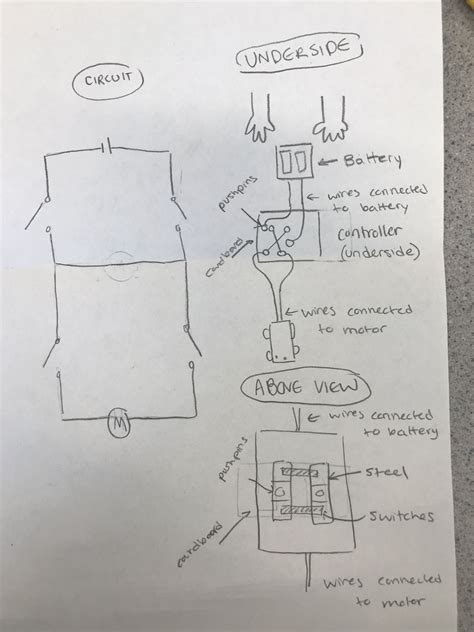 CIRCUIT
M
UNDERSIDE
Battery
pushpins
wires connected
to battery
cardboard
controller
(underside)
wires connected
to motor
ABOVE VIEW
wires connected
to battery
pushpins
steel
switches
cardboard
wires connected
to motor